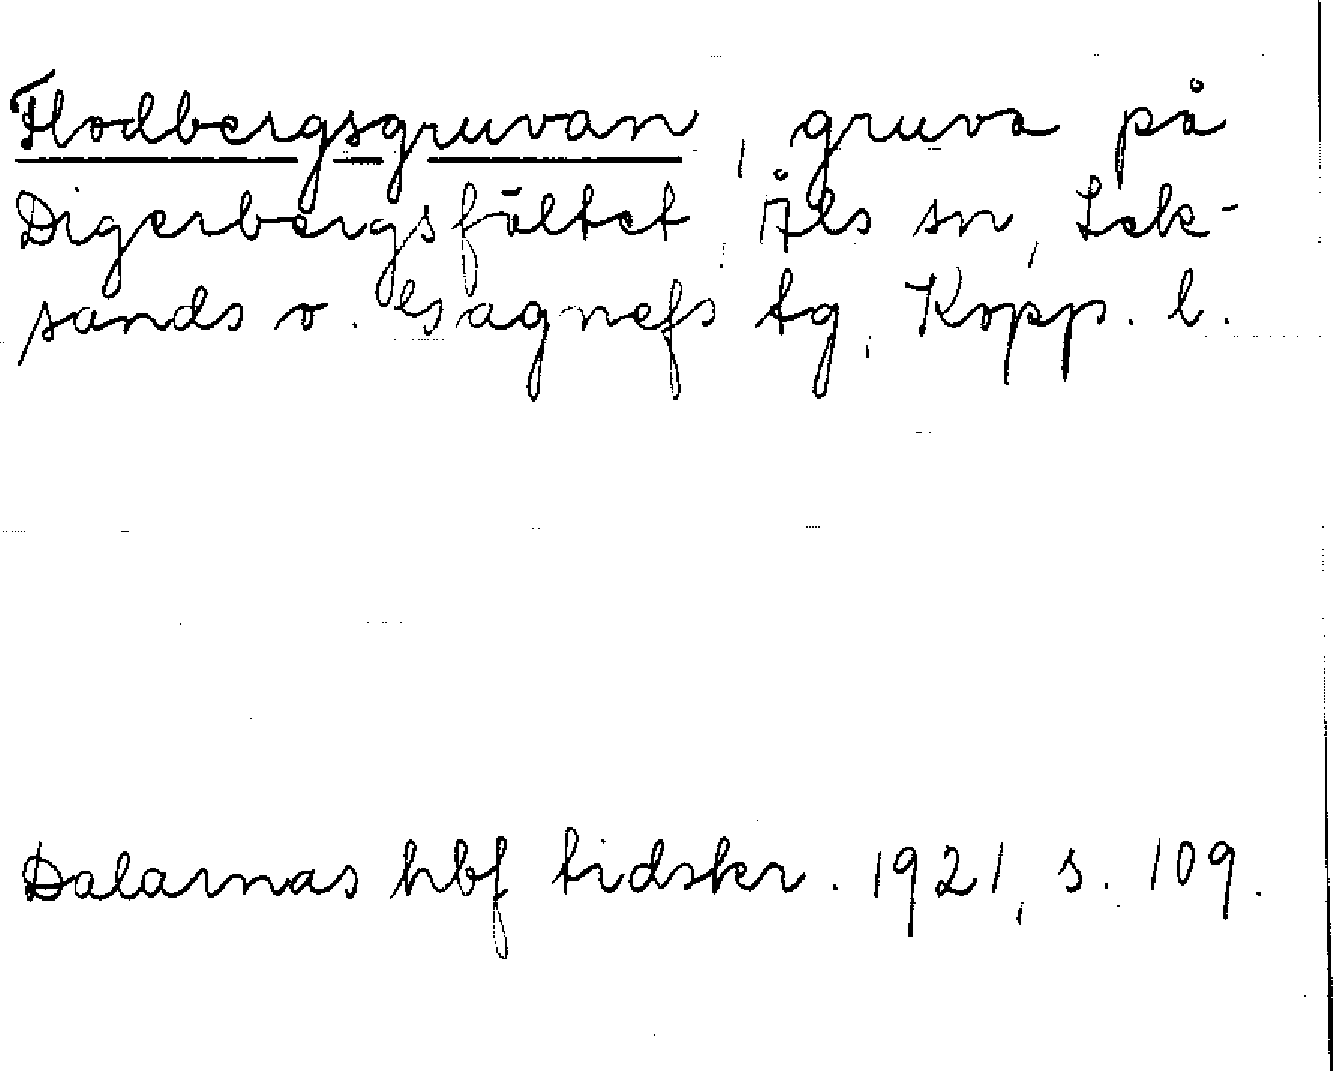 Flodbergsgruvan, gruva på
Digerbergsfältet, Åls sn, Lek-
sands o. Gagnefs tg, Kopp. l.
Dalarnas hbf tidskr. 1921, s. 109.